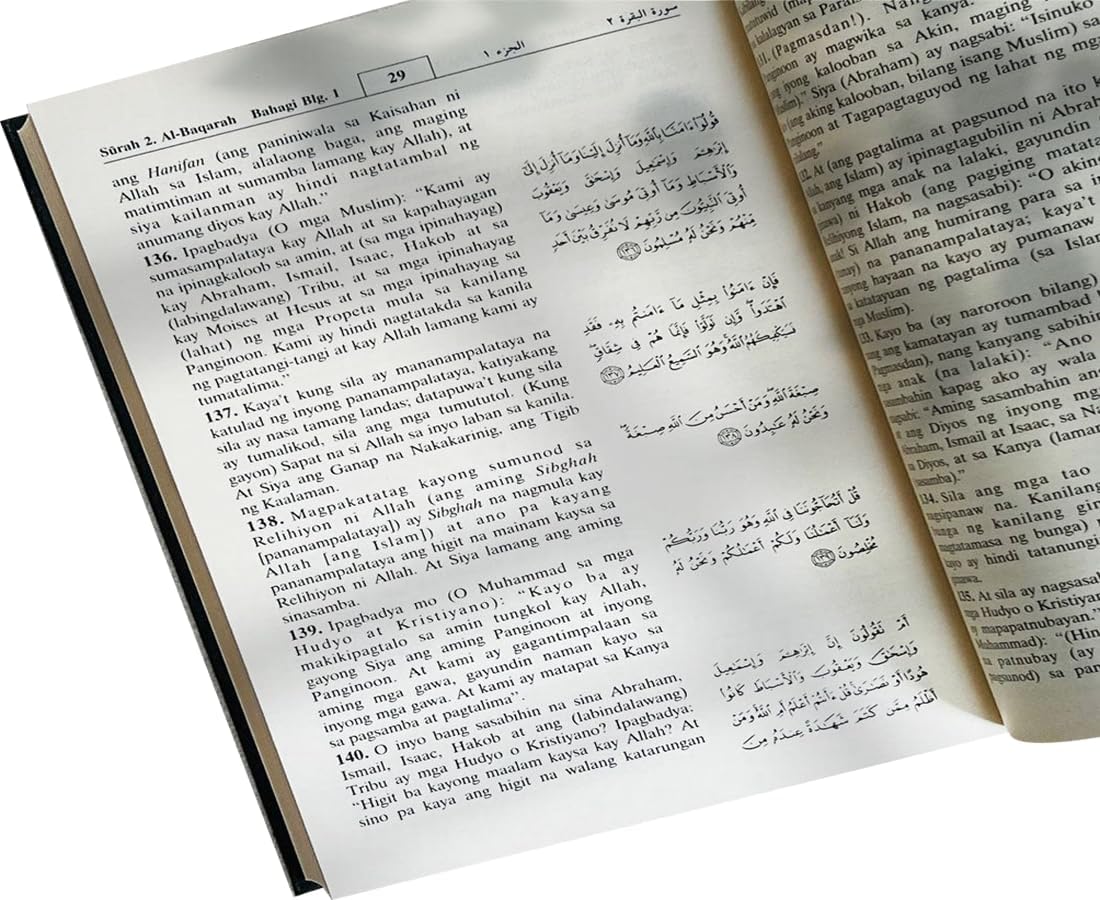 Sûrah 2. Al-Baqarah Bahagi Blg. 1
29
الجزء ١
سورة البقرة ٢
ang Hanifan (ang paniniwala sa Kaisahan ni
Allah sa Islam, alalaong baga, ang maging
matimtiman at sumamba lamang kay Allah), at
siya kailanman ay hindi nagtatambal ng
anumang diyos kay Allah.”
136. Ipagbadya (O mga Muslim): “Kami ay
sumasampalataya kay Allah at sa kapahayagan
na ipinagkaloob sa amin, at (sa mga ipinahayag)
kay Abraham, Ismail, Isaac, Hakob at sa
(labingdalawang) Tribu, at sa mga ipinahayag
kay Moises at Hesus at sa mga ipinahayag sa
(lahat) ng mga Propeta mula sa kanilang
Panginoon. Kami ay hindi nagtatakda sa kanila
ng pagtatangi-tangi at kay Allah lamang kami ay
tumatalima.”
137. Kaya’t kung sila ay mananampalataya na
katulad ng inyong pananampalataya, katiyakang
sila ay nasa tamang landas; datapuwa’t kung sila
ay tumalikod, sila ang mga tumututol. (Kung
gayon) Sapat na si Allah sa inyo laban sa kanila.
At Siya ang Ganap na Nakakarinig, ang Tigib
ng Kaalaman.
138. Magpakatatag kayong sumunod sa
Relihiyon ni Allah (ang aming Sibghah
[pananampalataya]) ay Sibghah na nagmula kay
Allah [ang Islam]) at ano pa kayang
pananampalataya ang higit na mainam kaysa sa
Relihiyon ni Allah. At Siya lamang ang aming
sinasamba.
139. Ipagbadya mo (O Muhammad sa mga
Hudyo at Kristiyano): “Kayo ba ay
makikipagtalo sa amin tungkol kay Allah,
gayong Siya ang aming Panginoon at inyong
Panginoon. At kami ay gagantimpalaan sa
aming mga gawa, gayundin naman kayo sa
inyong mga gawa. At kami ay matapat sa Kanya
sa pagsamba at pagtalima”.
140. O inyo bang sasabihin na sina Abraham,
Ismail, Isaac, Hakob at ang (labindalawang)
Tribu ay mga Hudyo o Kristiyano? Ipagbadya:
“Higit ba kayong maalam kaysa kay Allah? At
sino pa kaya ang higit na walang katarungan
قُولُوٓا۟ ءَامَنَّا بِٱللَّهِ وَمَآ أُنزِلَ إِلَيْنَا وَمَآ أُنزِلَ إِلَىٰٓ
إِبْرَٰهِـۧمَ وَإِسْمَـٰعِيلَ وَإِسْحَـٰقَ وَيَعْقُوبَ
وَٱلْأَسْبَاطِ وَمَآ أُوتِىَ مُوسَىٰ وَعِيسَىٰ وَمَآ
أُوتِىَ ٱلنَّبِيُّونَ مِن رَّبِّهِمْ لَا نُفَرِّقُ بَيْنَ أَحَدٍ
مِّنْهُمْ وَنَحْنُ لَهُۥ مُسْلِمُونَ ١٣٦
فَإِنْ ءَامَنُوا۟ بِمِثْلِ مَآ ءَامَنتُم بِهِۦ فَقَدِ
ٱهْتَدَوا۟ وَّإِن تَوَلَّوْا۟ فَإِنَّمَا هُمْ فِى شِقَاقٍ
فَسَيَكْفِيكَهُمُ ٱللَّهُ وَهُوَ ٱلسَّمِيعُ ٱلْعَلِيمُ ١٣٧
صِبْغَةَ ٱللَّهِ وَمَنْ أَحْسَنُ مِنَ ٱللَّهِ صِبْغَةً
وَنَحْنُ لَهُۥ عَـٰبِدُونَ ١٣٨
قُلْ أَتُحَآجُّونَنَا فِى ٱللَّهِ وَهُوَ رَبُّنَا وَرَبُّكُمْ
وَلَنَآ أَعْمَـٰلُنَا وَلَكُمْ أَعْمَـٰلُكُمْ وَنَحْنُ لَهُۥ
مُخْلِصُونَ ١٣٩
أَمْ تَقُولُونَ إِنَّ إِبْرَٰهِـۧمَ وَإِسْمَـٰعِيلَ
وَإِسْحَـٰقَ وَيَعْقُوبَ وَٱلْأَسْبَاطَ كَانُوا۟
هُودًا أَوْ نَصَـٰرَىٰ قُلْ ءَأَنتُمْ أَعْلَمُ أَمِ ٱللَّهُ وَمَنْ
أَظْلَمُ مِمَّن كَتَمَ شَهَـٰدَةً عِندَهُۥ مِنَ
kalalagyan sa
131. (Pagmasdan!). Nang
Panginoon ay magwika sa kanya: “Isinuko
ang iyong kalooban sa Akin, maging
Muslim).” Siya (Abraham) ay nagsabi:
(ang aking kalooban, bilang isang Muslim) sa
Panginoon at Tagapagtaguyod ng lahat ng mga
132. At (ang pagtalima at pagsunod na ito
Allah, ang Islam) ay ipinagtagubilin ni
kanyang mga anak na lalaki, gayundin
ni Hakob (ang pagiging
Relihiyong Islam, na nagsasabi): “O aking
anak! Si Allah ang humirang para sa
na pananampalataya; kaya’t
hayaan na kayo ay pumanaw
katatayuan ng pagtalima (sa
mga Muslim).
133. Kayo ba (ay naroroon bilang)
ang kamatayan ay tumambad
Pagmasdan), nang kanyang
mga anak (na lalaki): “Ano
sasambahin kapag ako ay wala
“Aming sasambahin
ang Diyos ng inyong
Abraham, Ismail at Isaac, sa
Diyos, at sa Kanya
134. Sila ang mga tao
nagsipanaw na.
bunga ng kanilang
ng bunga)
kayo ay hindi
135. At sila ay
mga Hudyo o
mapapatnubayan.”
Muhammad):
patnubay (ay
sa